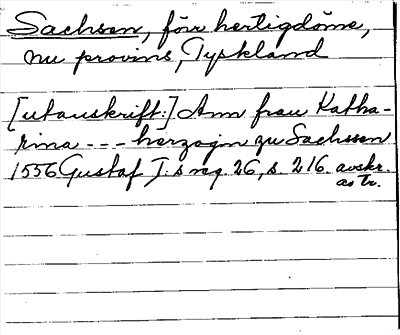 Sachsen, förr hertigdöme,
nu provins, Tyskland
[utanskrift:] Ann frau Katha-
rina --- herzogin zu Sachssen
1556 Gustaf I:s reg. 26, s. 216. avskr.
av tr.